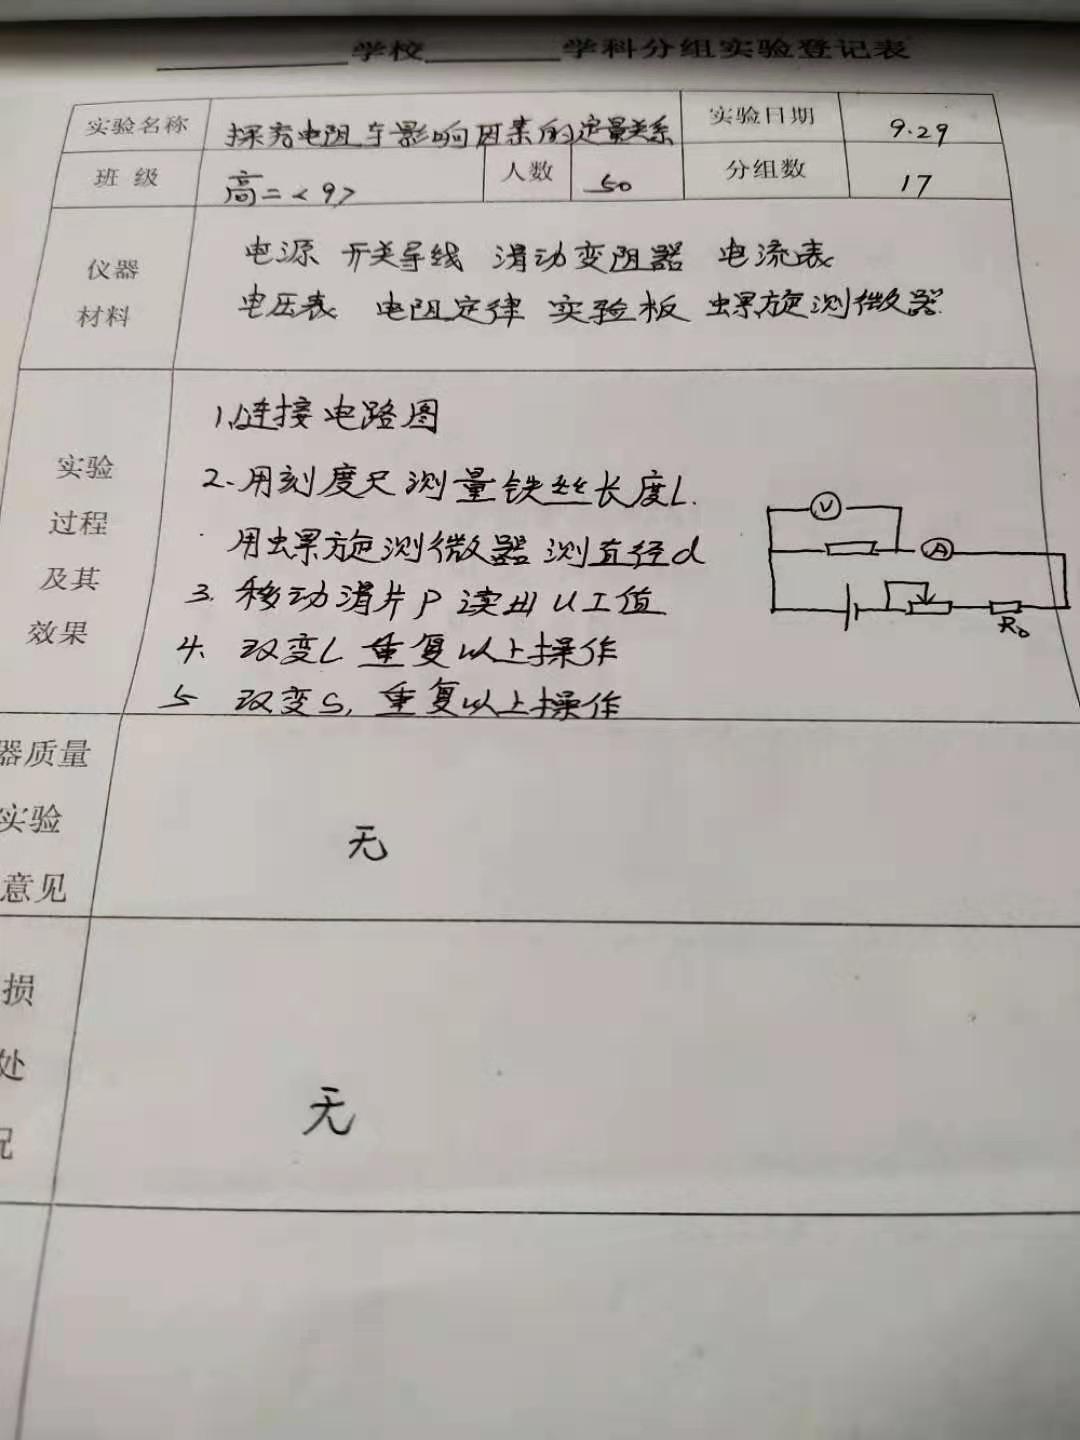 学校 学科分组实验登记表
实验名称 探究电阻与影响因素的定量关系 实验日期 9.29
班 级 高二<9> 人数 50 分组数 17
仪器
材料
电源 开关导线 滑动变阻器 电流表
电压表 电阻定律 实验板 螺旋测微器
实验
过程
及其
效果
1.连接电路图
2.用刻度尺测量铁丝长度L.
用螺旋测微器测直径d
3. 移动滑片P读出U I值
4. 改变L重复以上操作
5 改变S,重复以上操作
V
A
R₀
器质量
实验
意见
无
损
处
况
无